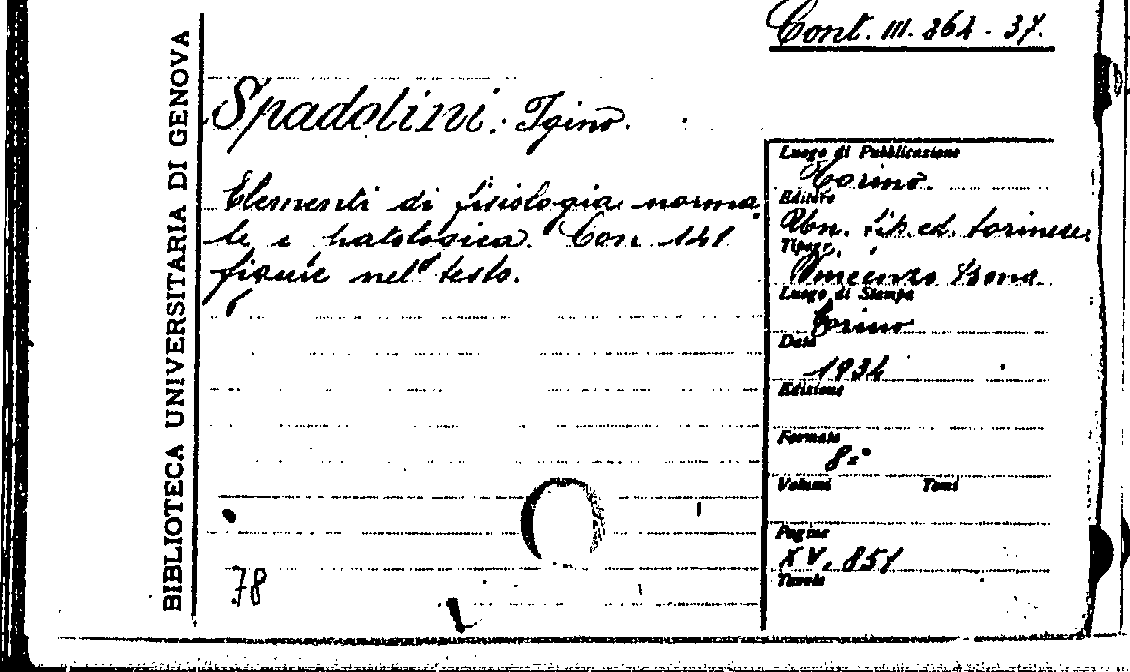 BIBLIOTECA UNIVERSITARIA DI GENOVA
Cont. III. 364 - 37.
Spadolini. Igino.
Elementi di fisiologia norma
le e patologica. Con 141
figure nel testo.
78
Luogo di Pubblicazione
Torino.
Editore
Un. tip. ed. torinese.
Tipogr.
Vincenzo Bona
Luogo di Stampa
Torino
Data
1934
Edizione
Formato
8°
Volumi Tomi
Pagine
XV, 851
Tavole